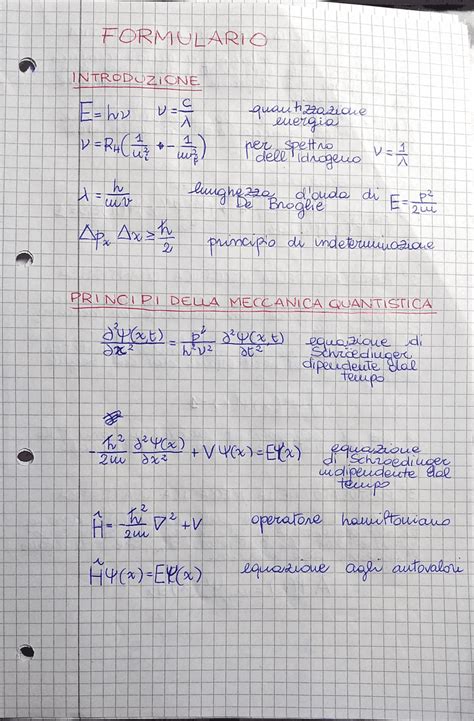 FORMULARIO
INTRODUZIONE
E=hν ν=c/λ quantizzazione energia
ν=R_H(1/n_i² - 1/n_f²) per spettro dell'idrogeno ν=1/λ
λ=h/mv lunghezza d'onda di De Broglie E=p²/2m
Δp_x Δx≥ħ/2 principio di indeterminazione
PRINCIPI DELLA MECCANICA QUANTISTICA
∂²Ψ(x,t)/∂x² = p²/h²ν² ∂²Ψ(x,t)/∂t² equazione di Schroedinger dipendente dal tempo
-ħ²/2m ∂²Ψ(x)/∂x² + VΨ(x)=EΨ(x) equazione di Schroedinger indipendente dal tempo
Ĥ=-ħ²/2m ∇²+V operatore hamiltoniano
ĤΨ(x)=EΨ(x) equazione agli autovalori